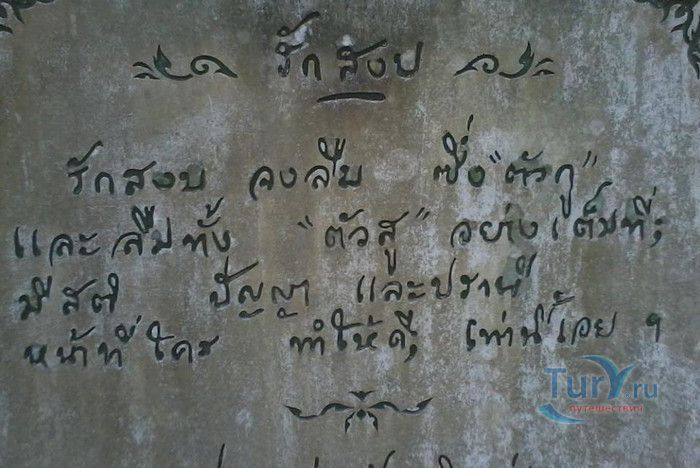 รักสงบ
รักสงบ จงลืม ซึ่ง "ตัวกู"
และลืมทั้ง "ตัวสู" อย่างเต็มที่;
มีสติ ปัญญา และปรานี
หน้าที่ใคร ทำให้ดี; เท่านี้เอย ฯ
Tury.ru
путешествия